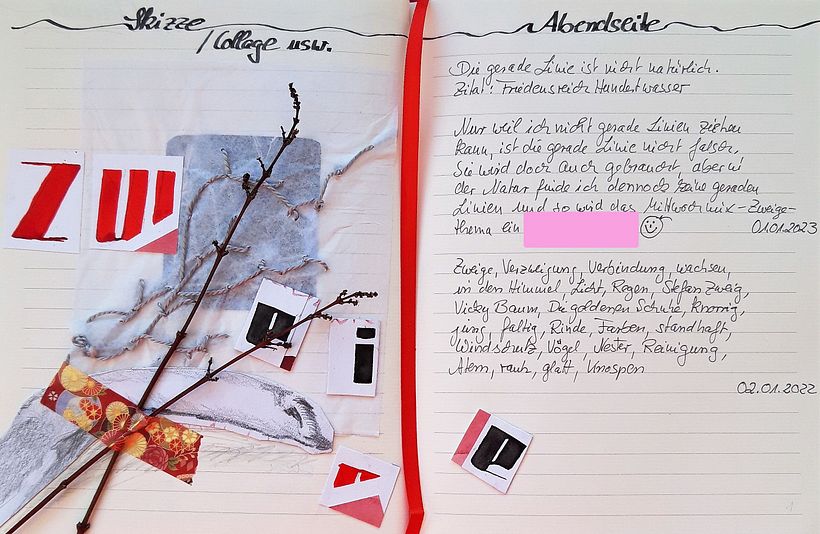 Skizze
/ Collage usw.
Z
w
e
i
g
e
Abendseite
Die gerade Linie ist nicht natürlich.
Zitat: Friedensreich Hundertwasser
Nur weil ich nicht gerade Linien ziehen
kann, ist die gerade Linie nicht falsch.
Sie wird doch auch gebraucht, aber in
der Natur finde ich dennoch keine geraden
Linien und so wird das Mittwochmix-Zweige-
thema ein
01.01.2023
Zweige, Verzweigung, Verbindung, wachsen,
in den Himmel, Licht, Regen, Stefan Zweig,
Vicky Baum, Die goldenen Schuhe, knorrig,
jung, faltig, Rinde, Farben, standhaft,
Windschutz, Vögel, Nester, Reinigung,
Atem, rauh, glatt, Knospen
02.01.2022